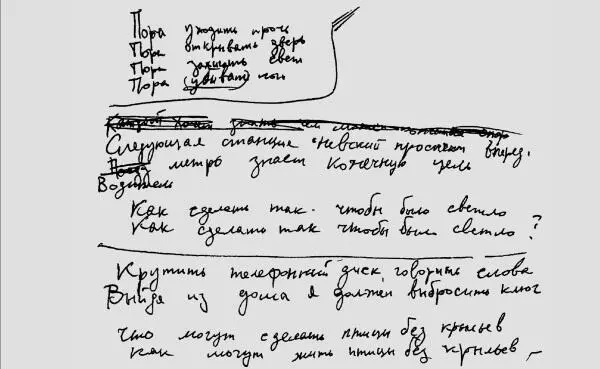 Пора уходить прочь
Пора открывать дверь
Пора зажигать свет
Пора убивать
Каждый хочет знать чем
Следующая станция Невский проспект вперед.
метро знает конечную цель
Водитель
Как сделать так чтобы было светло
Как сделать так чтобы было светло?
Крутить телефонный диск, говорить слова
Выйдя из дома я должен выбросить ключ
Что могут сделать птицы без крыльев
Как могут жить птицы без крыльев